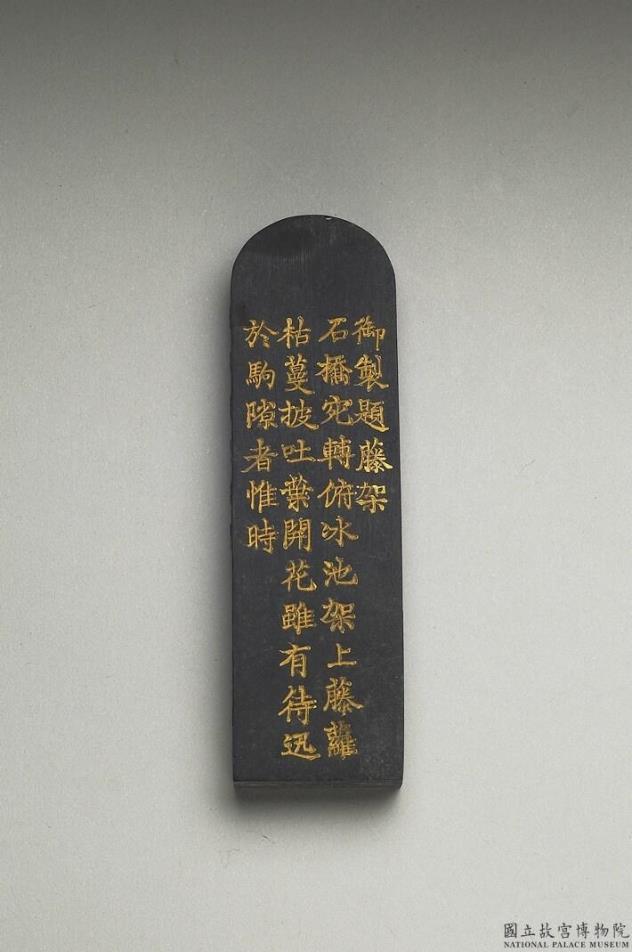 御製題藤架
石橋宛轉俯冰池架上藤蘿
枯蔓披吐葉開花雖有待迅
於駒隙者惟時
國立故宮博物院
NATIONAL PALACE MUSEUM